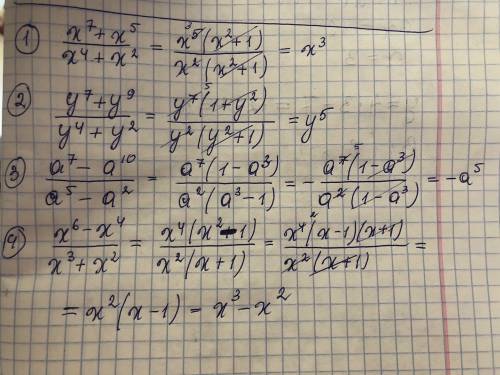 1) (x^7 + x^5)/(x^4 + x^2) = (x^5(x^2+1))/(x^2(x^2+1)) = x^3
2) (y^7 + y^9)/(y^4 + y^2) = (y^7(1+y^2))/(y^2(y^2+1)) = y^5
3) (a^7 - a^10)/(a^5 - a^2) = (a^7(1-a^3))/(a^2(a^3-1)) = -(a^7(1-a^3))/(a^2(1-a^3)) = -a^5
4) (x^6 - x^4)/(x^3 + x^2) = (x^4(x^2-1))/(x^2(x+1)) = (x^4(x-1)(x+1))/(x^2(x+1)) =
= x^2(x-1) = x^3 - x^2